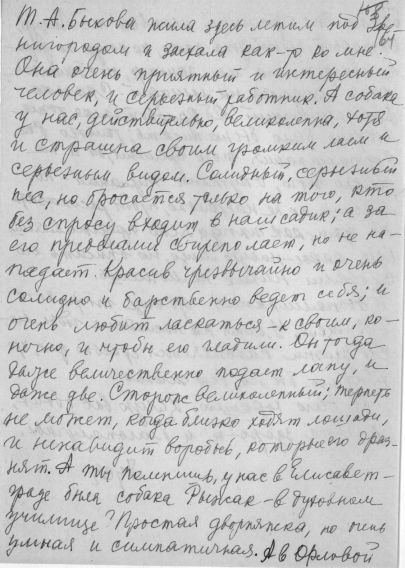 Т. А. Быкова жила здесь летом под Зве-
нигородом и заехала как-то ко мне.
Она очень приятный и интересный
человек, и серьезный работник. А собака
у нас, действительно, великолепна, хотя
и страшна своим громким лаем и
серьезным видом. Солидный, серьезный
пес, но бросается только на того, кто
без спросу входит в наш садик; а за
его пределами свирепо лает, но не на-
падает. Красив чрезвычайно и очень
солидно и барственно ведет себя; и
очень любит ласкаться – к своим, ко-
нечно, и чтобы его гладили. Он тогда
даже величественно подает лапу, и
даже две. Сторож великолепный; терпеть
не может, когда близко ходят лошади,
и ненавидит воробьев, которые его драз-
нят. А ты помнишь, у нас в Елисавет-
граде была собака Рыжак – в духовном
училище? Простая дворняжка, но очень
умная и симпатичная. А в Орловой